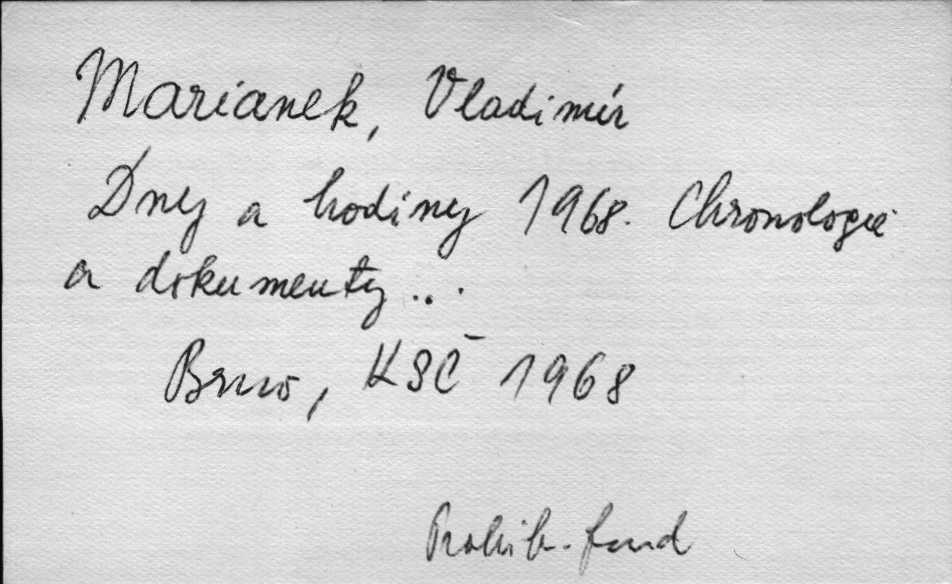 Marianek, Vladimír
Dny a hodiny 1968. Chronologie
a dokumenty...
Brno, KSČ 1968
Prohib. fond